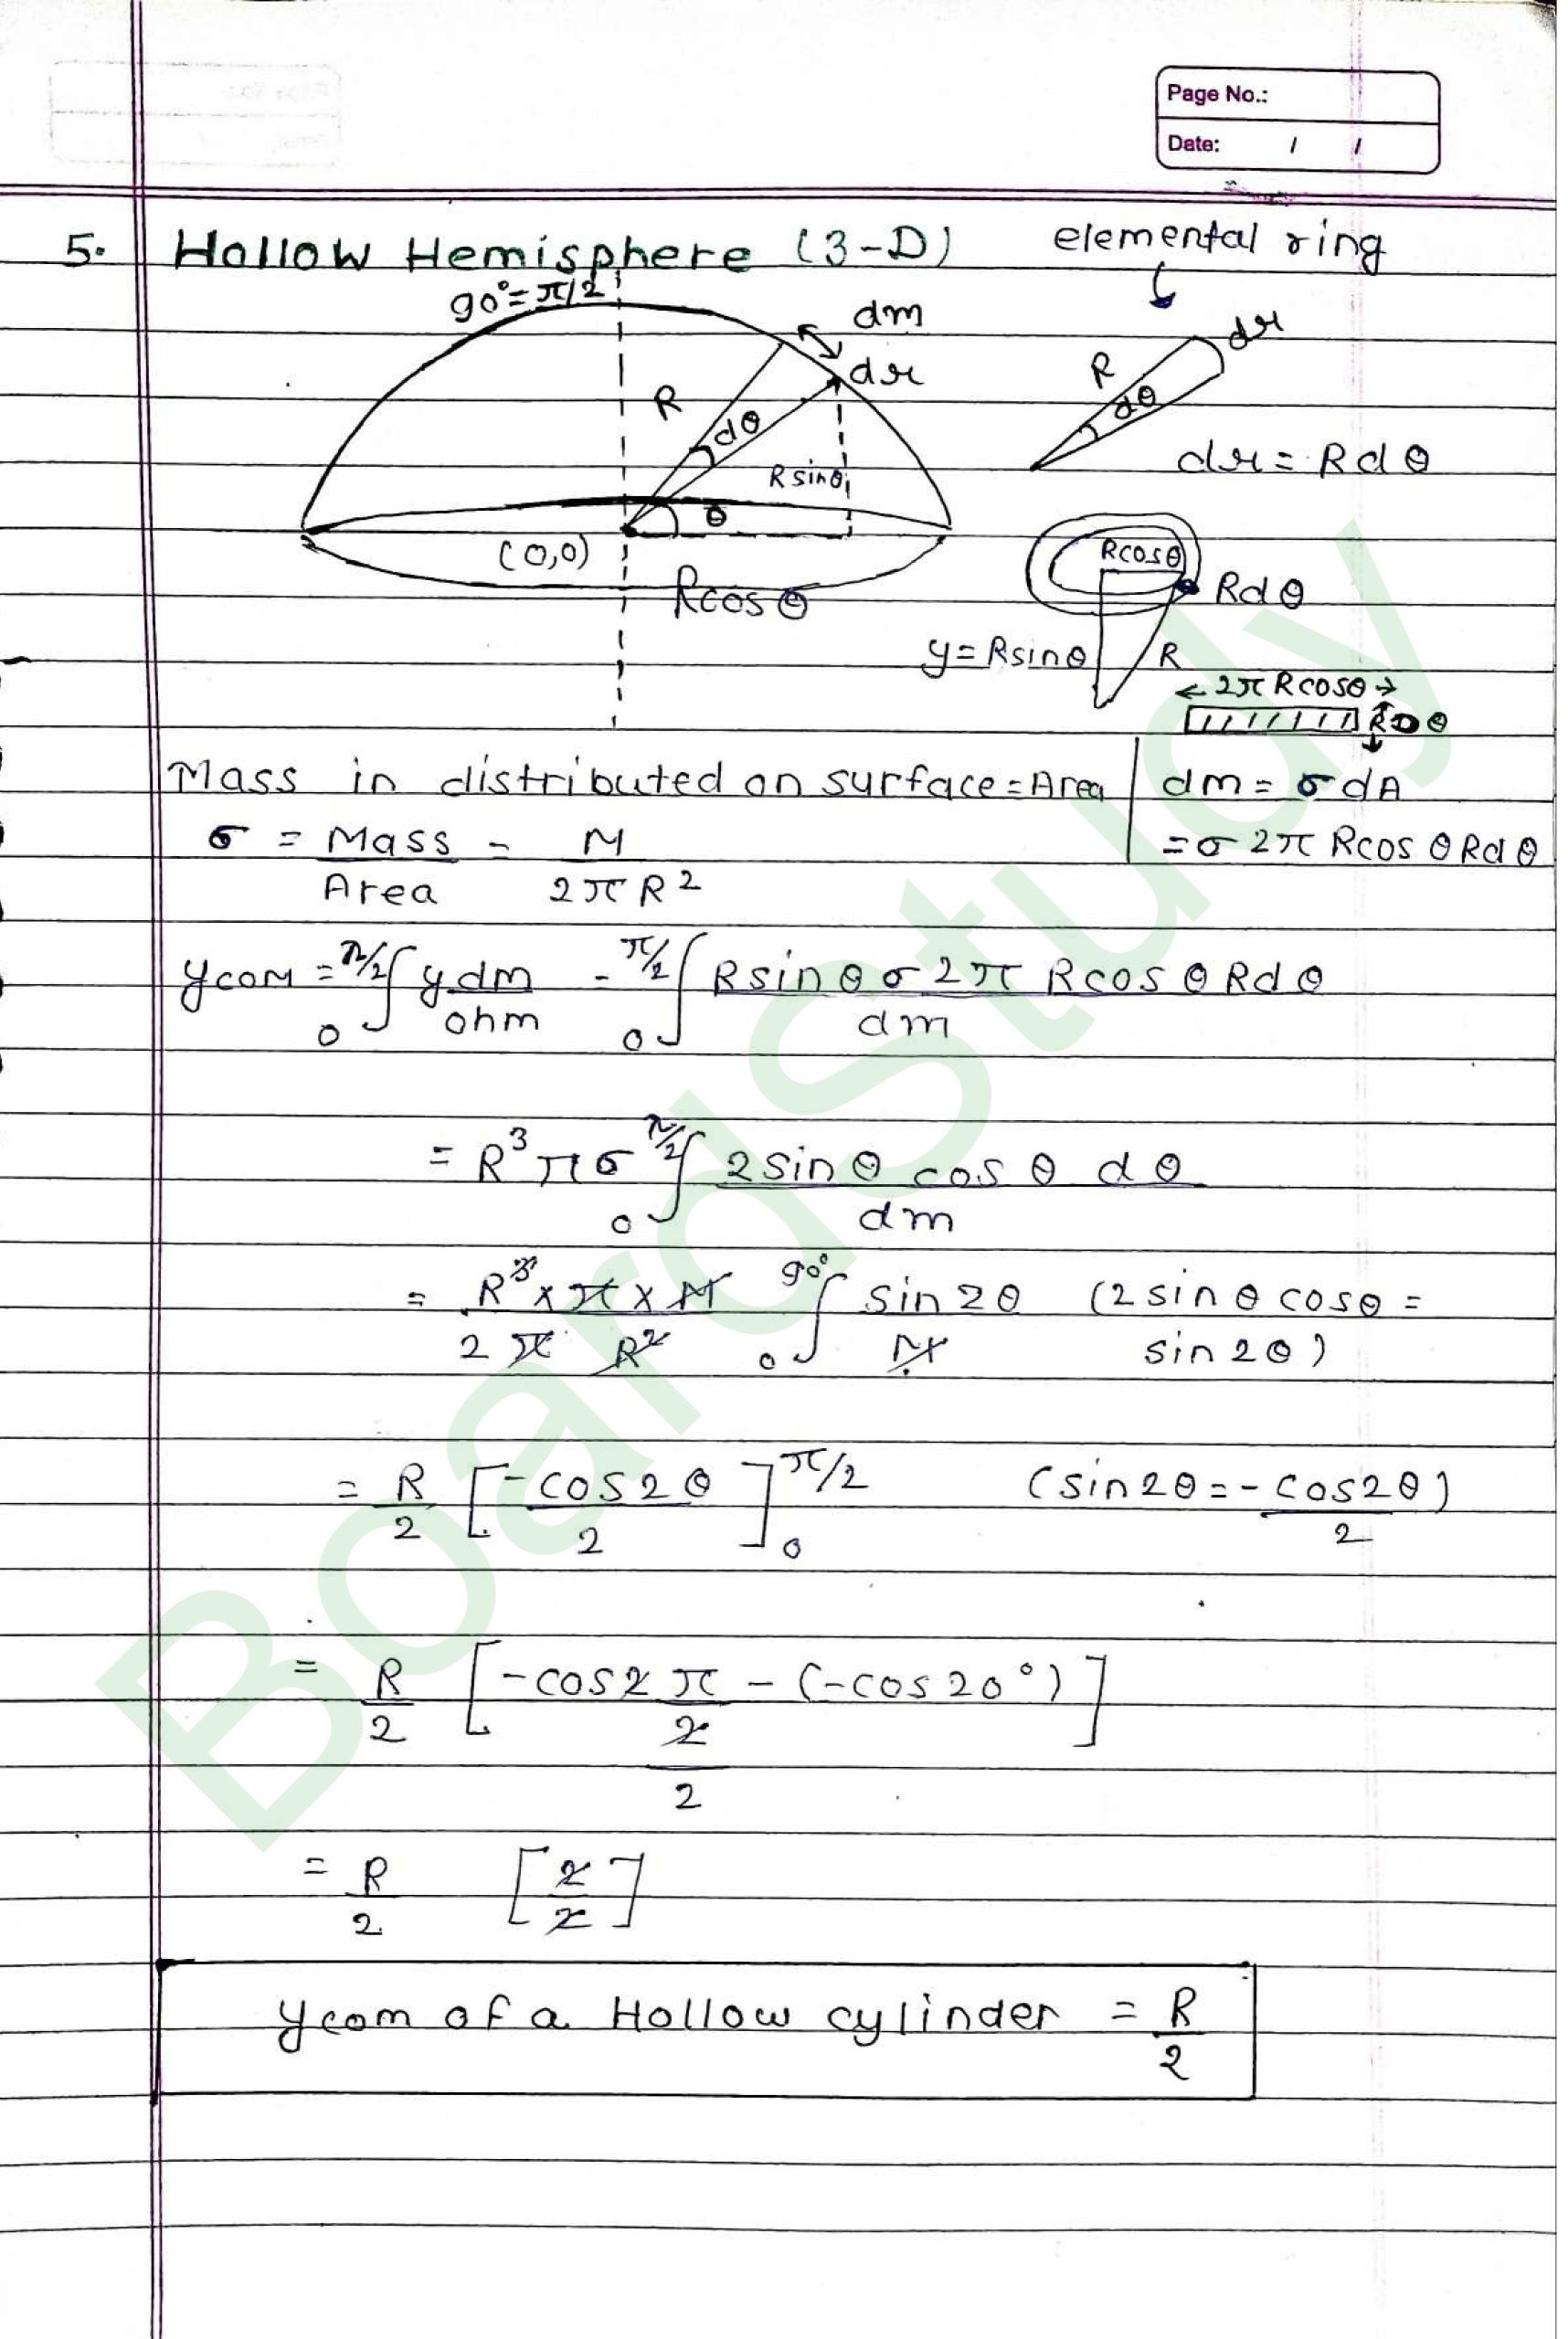 Page No.:
Date: / /
5. Hollow Hemisphere (3-D) elemental ring
90°=π/2
dm
dr
R
dθ
R sinθ
θ
(0,0)
Rcosθ
R
dθ
dr
dr = Rdθ
Rcosθ
Rdθ
y=Rsinθ
R
← 2π Rcosθ →
RDθ
Mass in distributed on surface=Area | dm = σ dA
σ = Mass/Area = M/2πR² | = σ 2π Rcos θ Rdθ
ycom = 0∫π/2 ydm/ohm = 0∫π/2 Rsin θ σ 2π Rcos θ Rd θ/dm
= R³πσ 0∫π/2 2sin θ cos θ dθ/dm
= R³×π×M/2π R² 0∫90° sin2θ/M (2sin θ cosθ =
sin2θ)
= R/2 [-cos2θ/2]0π/2 (sin2θ = -cos2θ/2)
= R/2 [-cos2π/2 - (-cos20°)/2]
= R/2 [2/2]
ycom of a Hollow cylinder = R/2
BoardStudy